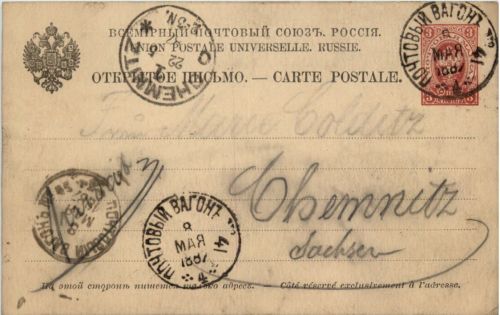 ВСЕМІРНЫЙ ПОЧТОВЫЙ СОЮЗЪ. РОССІЯ.
UNION POSTALE UNIVERSELLE. RUSSIE.
ОТКРЫТОЕ ПИСЬМО. — CARTE POSTALE.
CHEMNITZ
ПОЧТОВЫЙ ВАГОНЪ
8
МАЯ
1887
41
4
3
3
Marie Colditz
Chemnitz
Sachsen
ПОЧТОВЫЙ ВАГОНЪ
8
МАЯ
1887
41
4
На этой сторонѣ пишется только адресъ. Côté réservé exclusivement à l'adresse.